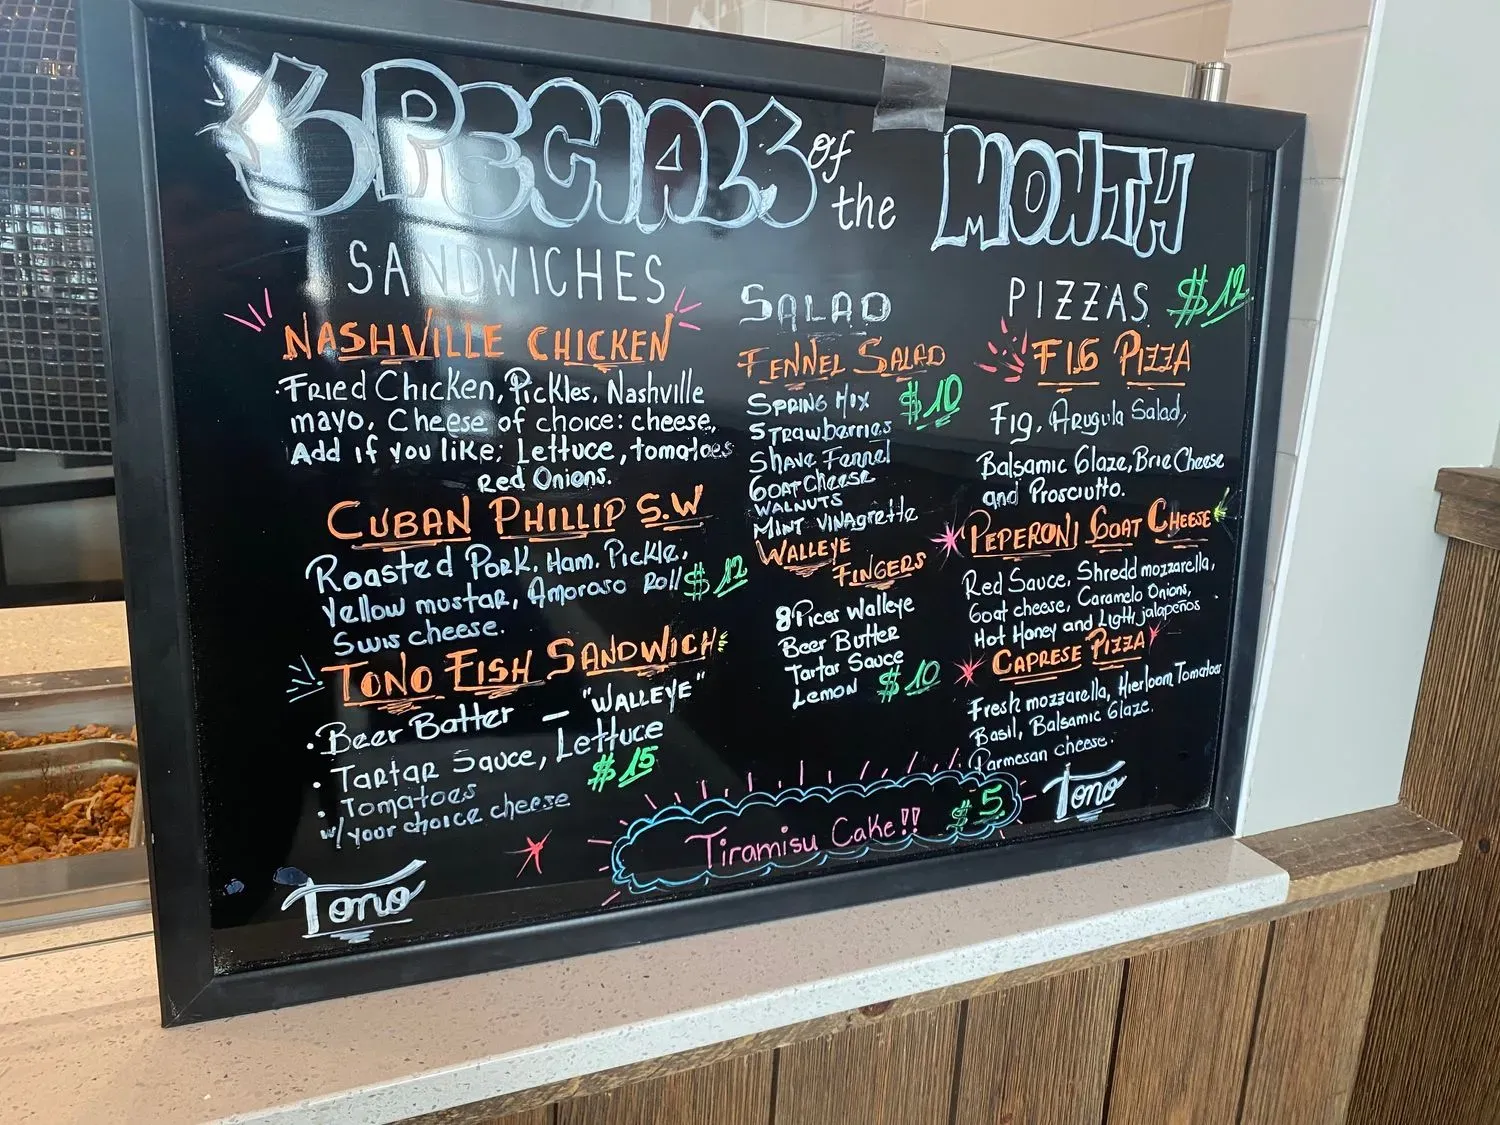 SPECIALS of the MONTH
SANDWICHES
NASHVILLE CHICKEN
Fried Chicken, Pickles, Nashville
mayo, Cheese of choice: cheese,
Add if you like: Lettuce, tomatoes
Red Onions.
CUBAN PHILLIP S.W
Roasted Pork, Ham, Pickle,
Yellow mustar, Amoroso Roll $12
Swis cheese.
TONO FISH SANDWICH
· Beer Batter — "WALLEYE"
· Tartar Sauce, Lettuce
$15
· Tomatoes
w/ your choice cheese
Tono
SALAD
FENNEL SALAD
$10
SPRING MIX
Strawberries
Shave Fennel
Goat Cheese
WALNUTS
MINT VINAgrette
WALLEYE
FINGERS
8 Pices Walleye
Beer Butter
Tartar Sauce
Lemon $10
PIZZAS $12
FIG PIZZA
Fig, Arugula Salad,
Balsamic Glaze, Brie Cheese
and Prosciutto.
PEPERONI GOAT CHEESE
Red Sauce, Shredd mozzarella,
Goat cheese, Caramelo Onions,
Hot Honey and Light jalapeños
CAPRESE PIZZA
Fresh mozzarella, Hierloom Tomatoes
Basil, Balsamic Glaze.
Parmesan cheese.
Tono
Tiramisu Cake!! $5